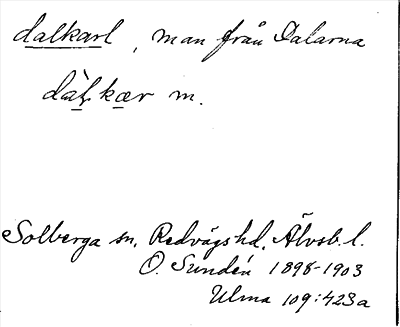 dalkarl, man från Dalarna
dàl̀kær m.
Solberga sn. Redvägs hd. Älvsb. l.
O. Sundén 1898-1903
Ulma 109:423a